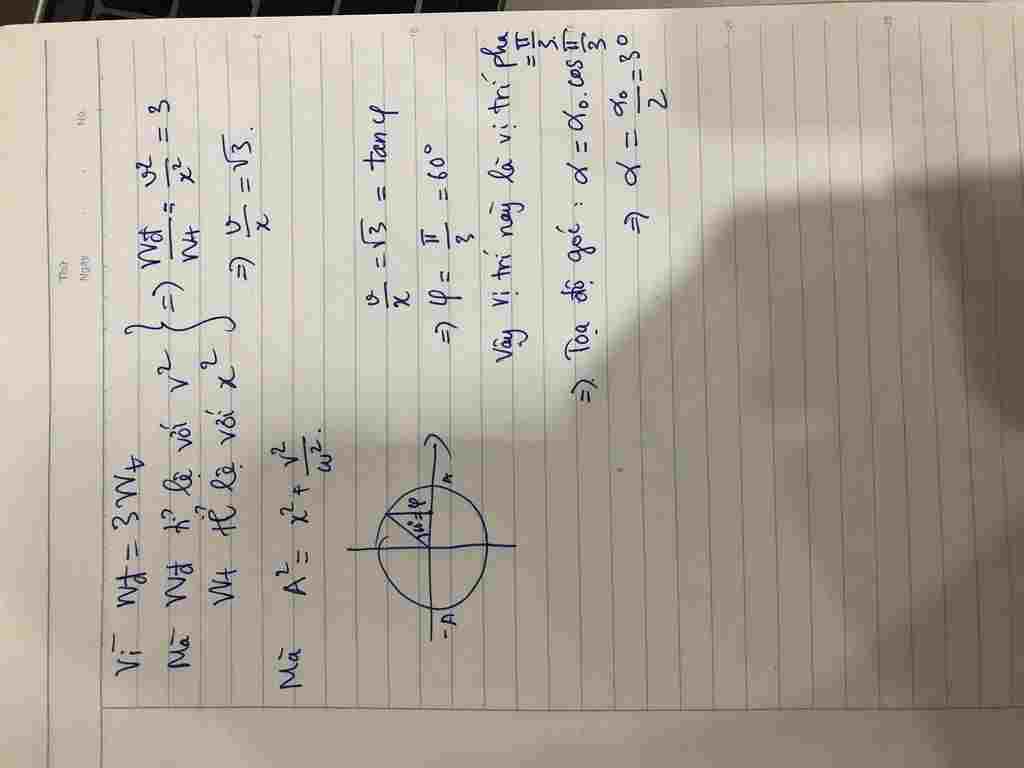 Thứ
Ngày
No.
Vì Wđ = 3Wt
Mà Wđ tỉ lệ với v²
Wt tỉ lệ với x²
} => Wđ/Wt = v²/x² = 3
=> v/x = √3.
Mà A² = x² + v²/ω².
-A A φ
v/x = √3 = tan φ
=> φ = π/3 = 60°
Vậy vị trí này là vị trí pha = π/3
=> Tọa độ góc : α = α₀.cos π/3
=> α = α₀/2 = 3°